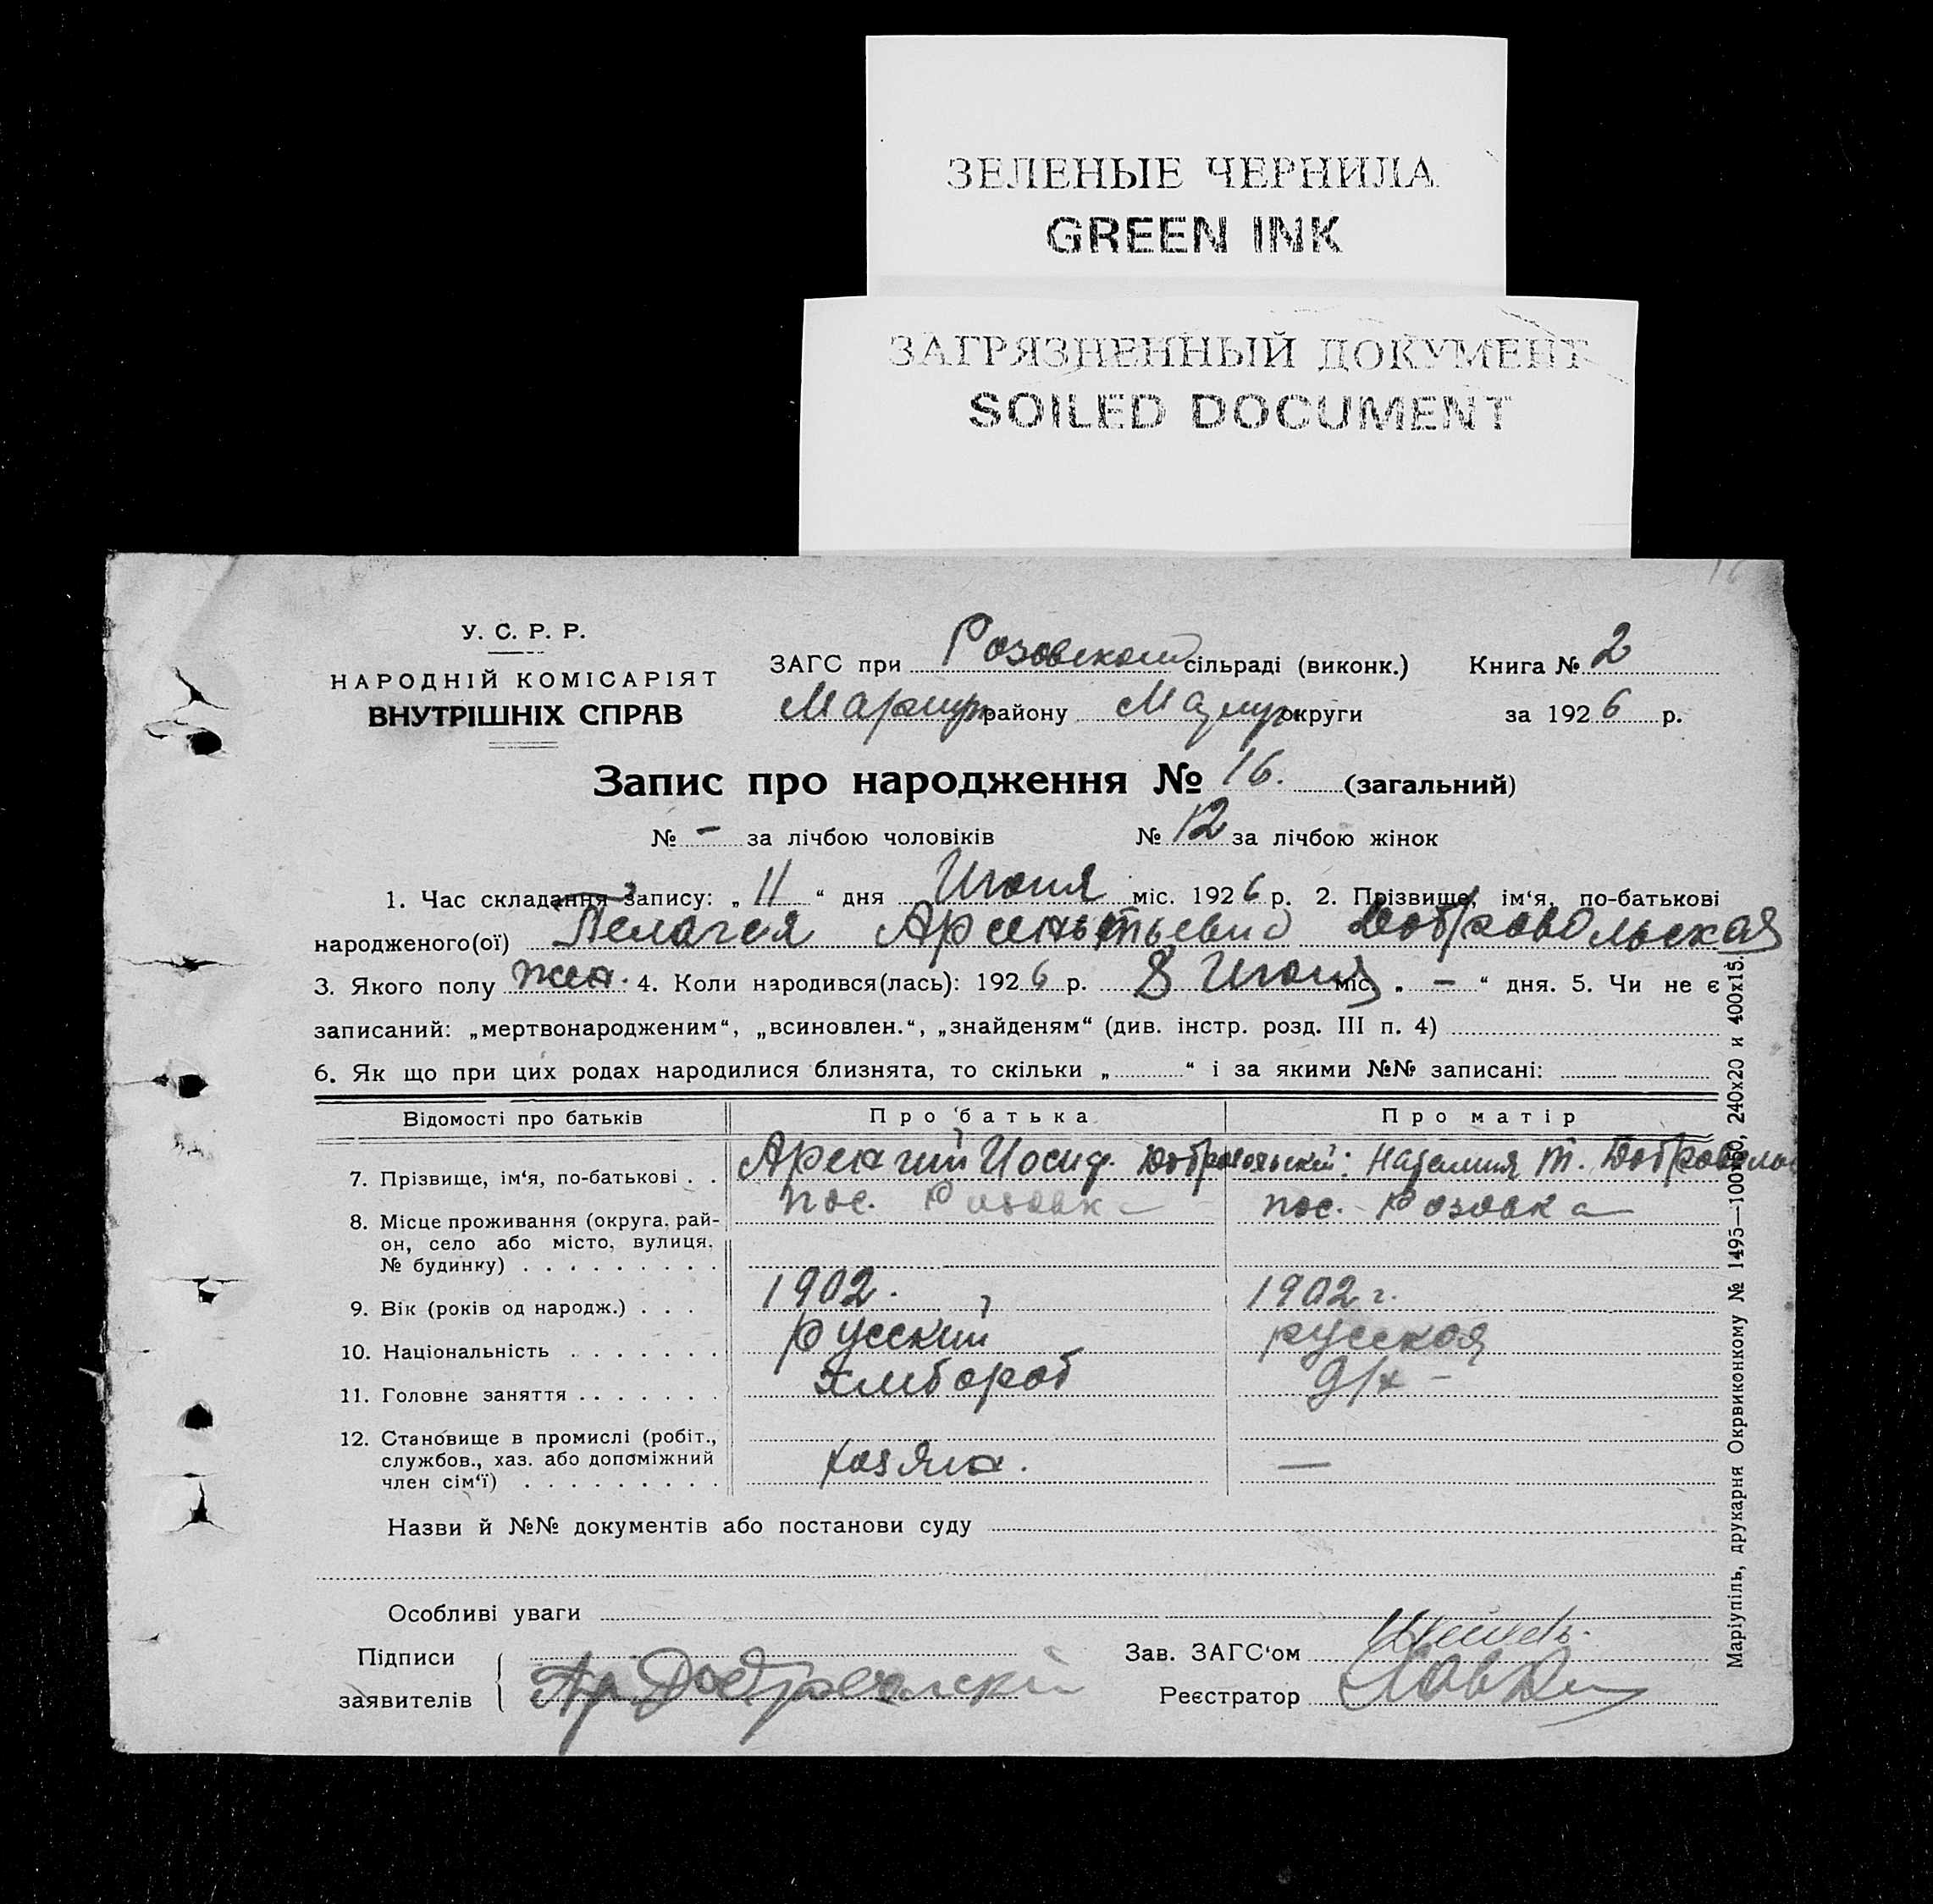 ЗЕЛЕНЫЕ ЧЕРНИЛА
GREEN INK
ЗАГРЯЗНЕННЫЙ ДОКУМЕНТ
SOILED DOCUMENT
У. С. Р. Р.
НАРОДНІЙ КОМІСАРІЯТ
ВНУТРІШНІХ СПРАВ
ЗАГС при Розовском сільраді (виконк.) Книга № 2
Мариуп району округи за 1926 р.
Запис про народження № 16. (загальний)
№ - за лічбою чоловіків № 12 за лічбою жінок
1. Час складання запису: „ 11 “ дня Июня міс. 1926 р. 2. Прізвище, ім‘я, по-батькові
народженого(ої) Пелагея Добровольская
3. Якого полу жен. 4. Коли народився(лась): 1926 р. 8 Июня міс. „ — “ дня. 5. Чи не є
записаний: „мертвонародженим“, „всиновлен.“, „знайденям“ (див. інстр. розд. III п. 4)
6. Як що при цих родах народилися близнята, то скільки „ “ і за якими №№ записані:
Відомості про батьків Про батька Про матір
7. Прізвище, ім‘я, по-батькові . . Иосиф. Добровольский: Наталия Т. Добровольс
8. Місце проживання (округа, рай-
он, село або місто, вулиця,
№ будинку) . . . . . . . . . пос. Розовка пос. Розовка
9. Вік (років од народж.) . . . 1902. 1902 г.
10. Національність . . . . . . . Русский русская
11. Головне заняття . . . . . . . хлибороб д/х —
12. Становище в промислі (робіт.,
службов., хаз. або допоміжний
член сім‘ї) . . . . . . . . . хозяин. —
Назви й №№ документів або постанови суду
Особливі уваги
Підписи
заявителів Ар Добровольскій
Зав. ЗАГС‘ом
Реєстратор
Маріупіль, друкарня Окрвиконкому № 1495—100х50, 240х20 и 400х15.